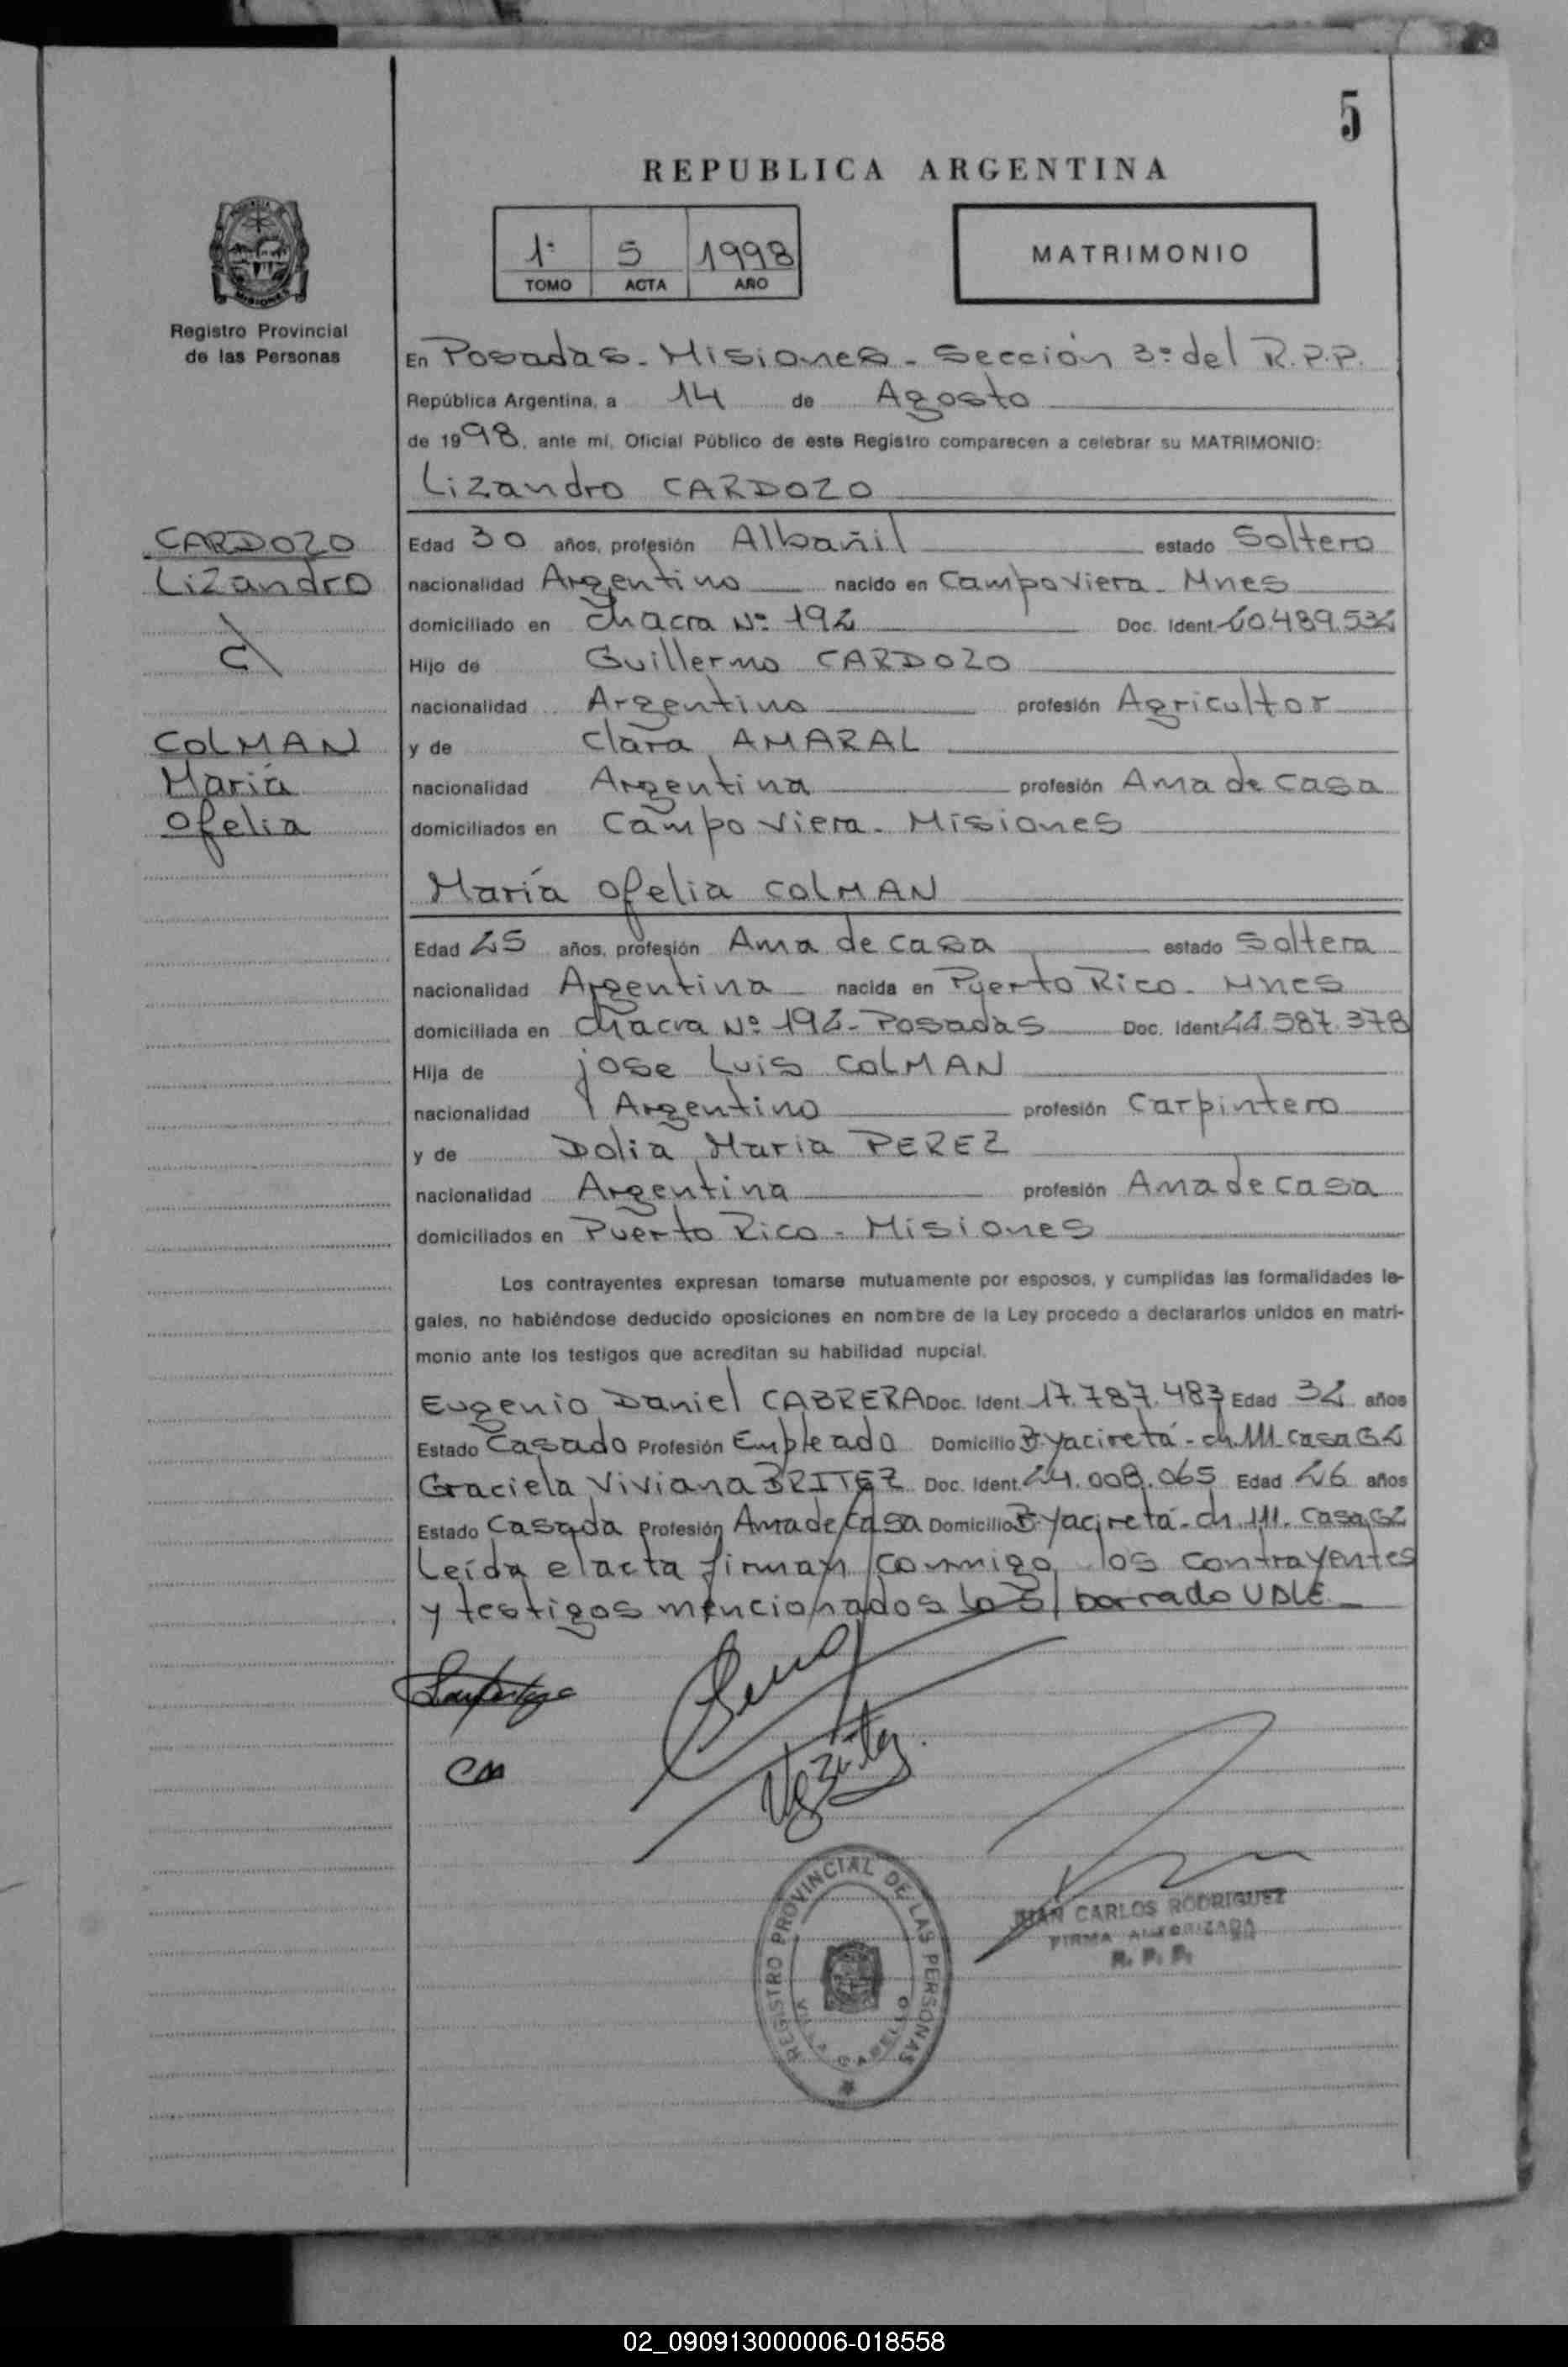 5
REPUBLICA ARGENTINA
1º 5 1998
TOMO ACTA AÑO
MATRIMONIO
Registro Provincial
de las Personas
En Posadas - Misiones - Sección 3º del R.P.P.
República Argentina, a 14 de Agosto
de 1998, ante mí, Oficial Público de este Registro comparecen a celebrar su MATRIMONIO:
Lizandro CARDOZO
CARDOZO
Lizandro
c/
COLMAN
María
Ofelia
Edad 30 años, profesión Albañil estado Soltero
nacionalidad Argentino nacido en Campo Viera - Mnes
domiciliado en Chacra Nº 192 Doc. Ident. 20.489.532
Hijo de Guillermo CARDOZO
nacionalidad Argentino profesión Agricultor
y de Clara AMARAL
nacionalidad Argentina profesión Ama de casa
domiciliados en Campo Viera - Misiones
María Ofelia COLMAN
Edad 25 años, profesión Ama de casa estado Soltera
nacionalidad Argentina nacida en Puerto Rico - Mnes
domiciliada en Chacra Nº 192 - Posadas Doc. Ident. 22.587.378
Hija de jose Luis COLMAN
nacionalidad Argentino profesión Carpintero
y de Dolia Maria PEREZ
nacionalidad Argentina profesión Ama de casa
domiciliados en Puerto Rico - Misiones
Los contrayentes expresan tomarse mutuamente por esposos, y cumplidas las formalidades le-
gales, no habiéndose deducido oposiciones en nombre de la Ley procedo a declararlos unidos en matri-
monio ante los testigos que acreditan su habilidad nupcial.
Eugenio Daniel CABRERA Doc. Ident. 17.787.483 Edad 32 años
Estado Casado Profesión Empleado Domicilio Bº Yaciretá - ch. 111 - casa 62
Graciela Viviana BRITEZ Doc. Ident. 24.008.065 Edad 26 años
Estado Casada Profesión Ama de Casa Domicilio Bº Yaciretá - ch 111 - casa 62
Leída el acta firman conmigo los contrayentes
y testigos mencionados lo s/ borrado VALE
REGISTRO PROVINCIAL DE LAS PERSONAS
VILLA CABELLO
JUAN CARLOS RODRIGUEZ
FIRMA AUTORIZADA
R. P. P.
02_090913000006-018558